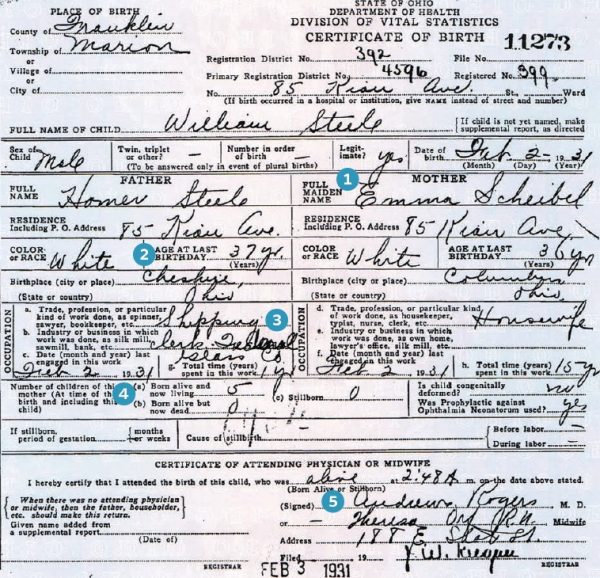 PLACE OF BIRTH
STATE OF OHIO
DEPARTMENT OF HEALTH
DIVISION OF VITAL STATISTICS
CERTIFICATE OF BIRTH 11273
County of Franklin
Township of Marion
or
Village of
or
City of
Registration District No. 392 File No.
Primary Registration District No. 4596 Registered No. 399
No. 85 Kian Ave. St., Ward
(If birth occurred in a hospital or institution, give NAME instead of street and number)
FULL NAME OF CHILD William Steele
If child is not yet named, make supplemental report, as directed
Sex of Child Male Twin, triplet or other? — Number in order of birth — Legit-imate? yes Date of birth Feb. 2, 1931
(To be answered only in event of plural births) (Month) (Day) (Year)
FATHER 1 MOTHER
FULL NAME Homer Steele FULL MAIDEN NAME Emma Scheibel
RESIDENCE Including P. O. Address 85 Kian Ave. RESIDENCE Including P. O. Address 85 Kian Ave.
COLOR or RACE White 2 AGE AT LAST BIRTHDAY 37 yr. (Years) COLOR or RACE White AGE AT LAST BIRTHDAY 36 yr. (Years)
Birthplace (city or place) Cheshire, Birthplace (city or place) Columbus,
(State or country) Ohio (State or country) Ohio
OCCUPATION
a. Trade, profession, or particular kind of work done, as spinner, sawyer, bookkeeper, etc. Shipping 3
b. Industry or business in which work was done, as silk mill, sawmill, bank, etc. Clerk Federal Glass Co
c. Date (month and year) last engaged in this work Feb 2 1931
g. Total time (years) spent in this work 1 yr
OCCUPATION
d. Trade, profession, or particular kind of work done, as housekeeper, typist, nurse, clerk, etc. Housewife
e. Industry or business in which work was done, as own home, lawyer's office, silk mill, etc.
f. Date (month and year) last engaged in this work Feb 2 1931
h. Total time (years) spent in this work 15 yr
4 Number of children of this mother (At time of this birth and including this child) (a) Born alive and now living 5 (c) Stillborn 0
(b) Born alive but now dead 0
Is child congenitally deformed? no
Was Prophylactic against Ophthalmia Neonatorum used? yes
If stillborn, period of gestation months or weeks Cause of stillbirth Before labor —
During labor —
CERTIFICATE OF ATTENDING PHYSICIAN OR MIDWIFE
I hereby certify that I attended the birth of this child, who was alive 2:48 A m. on the date above stated.
(Born Alive or Stillborn)
When there was no attending physician or midwife, then the father, householder, etc. should make this return.
5 (Signed) Andrews Rogers M. D.
or — Theresa Orf R.N. Midwife
Given name added from a supplemental report
(Date of)
Address 188 E State St
Filed 19
REGISTRAR FEB 3 1931 REGISTRAR